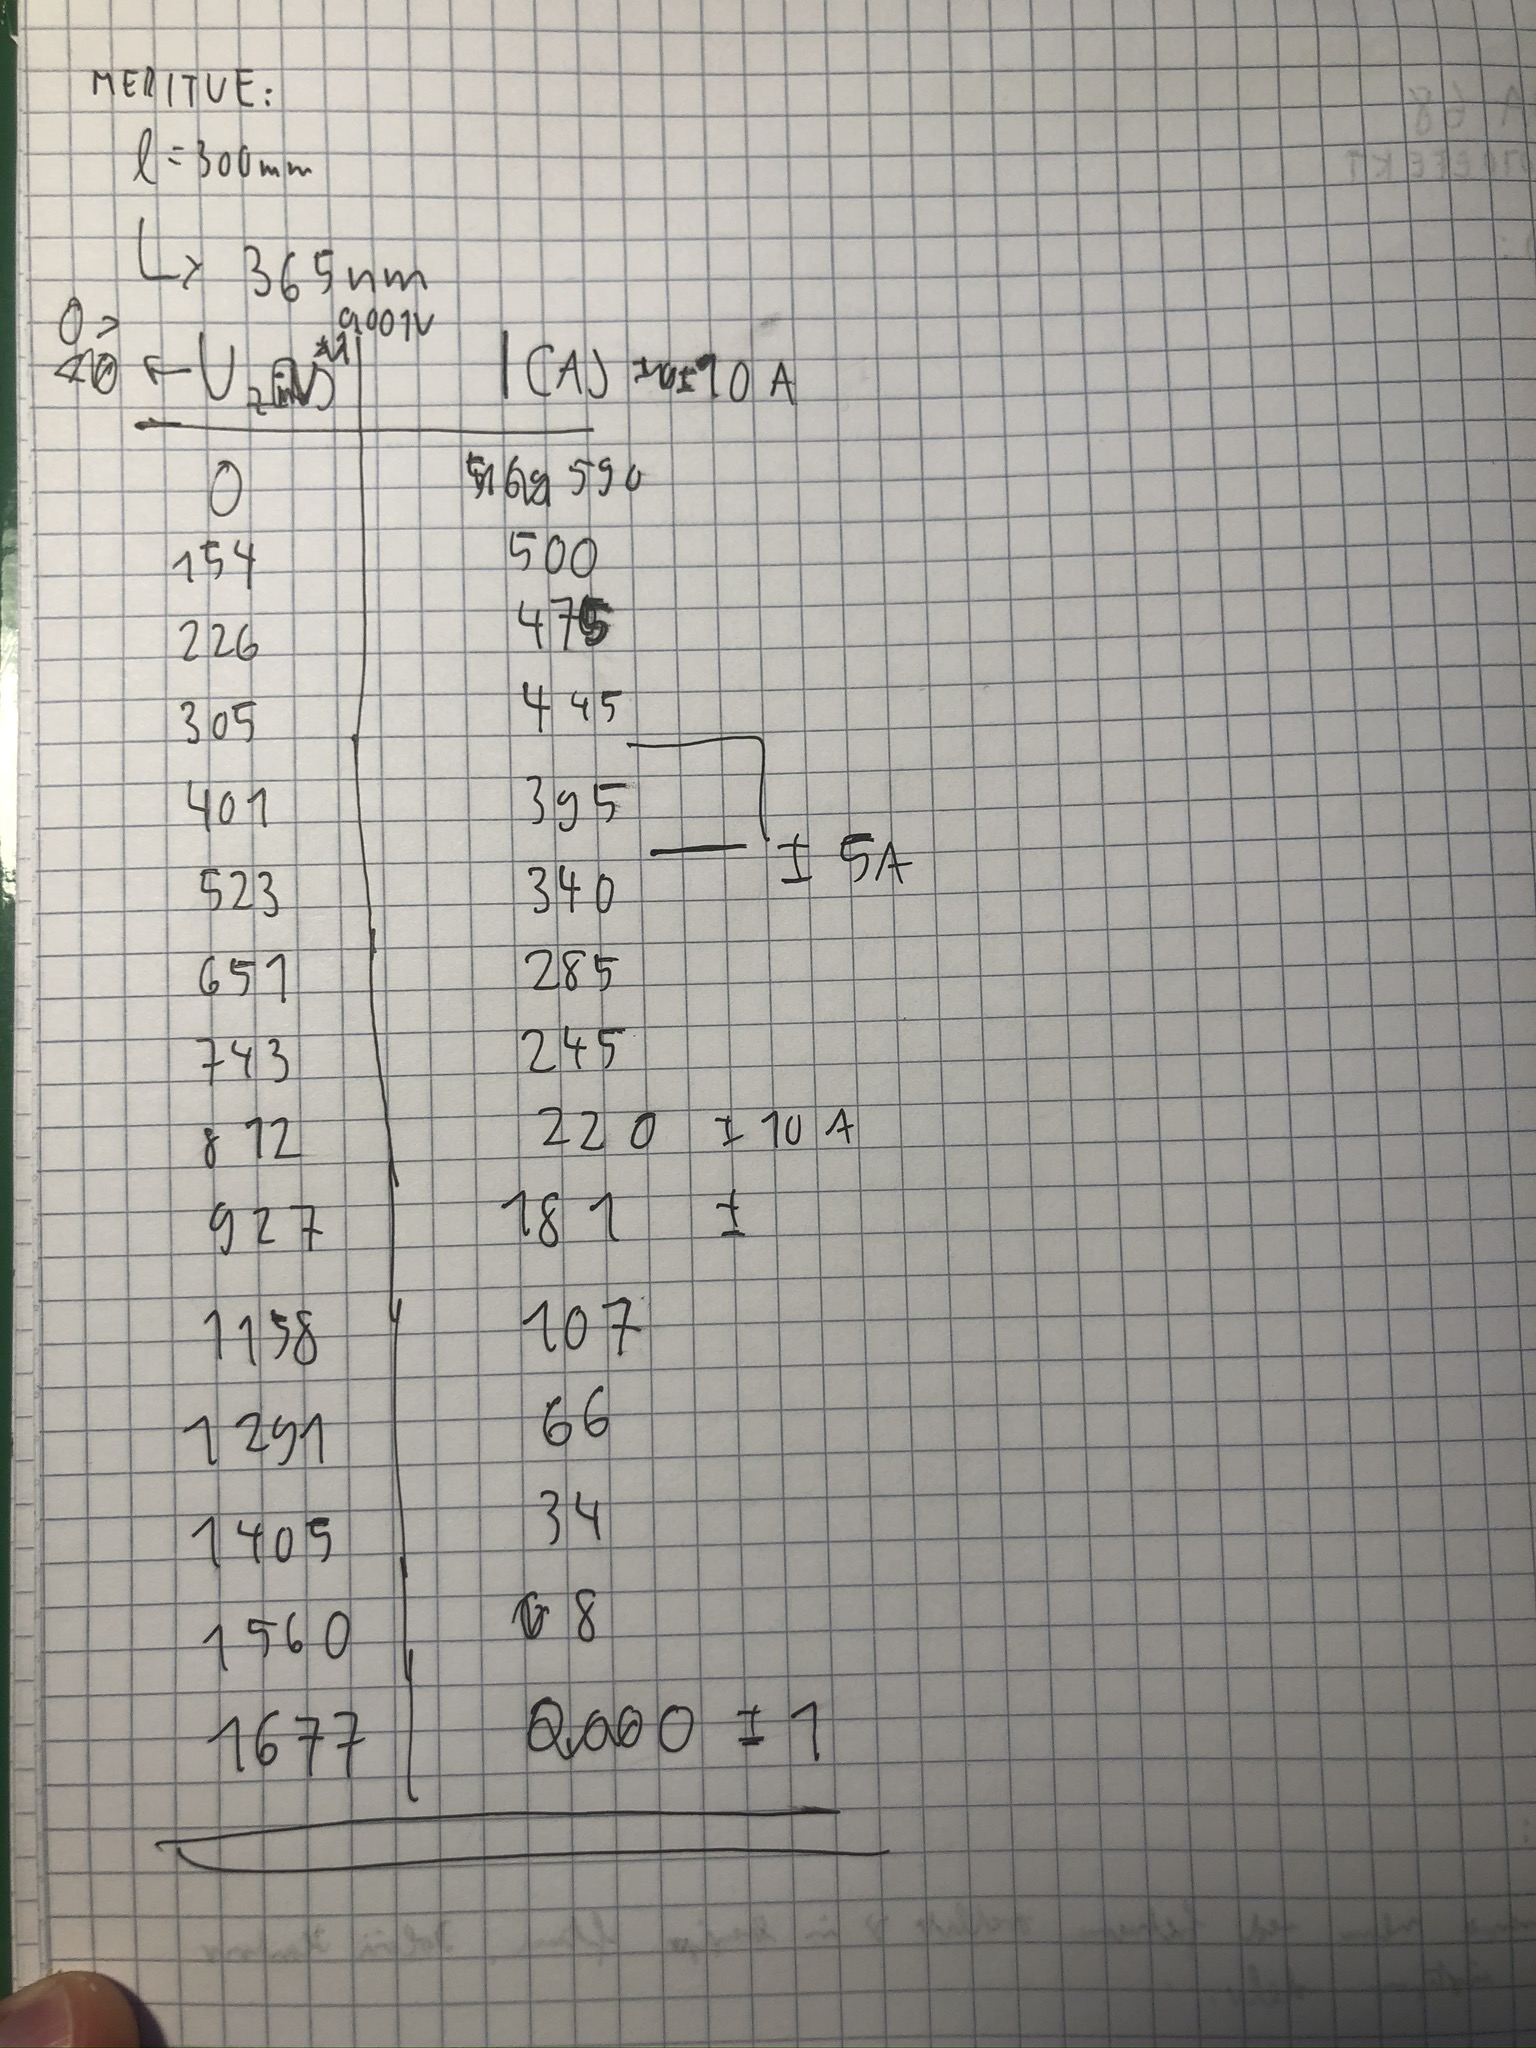 MERITVE:
l = 300mm
↳ 365nm
0.001V
0 >
← U I (A) ± 10 A
0 590
154 500
226 475
305 445
401 395
± 5A
523 340
651 285
743 245
812 220 ± 10 A
927 181 ±
1158 107
1291 66
1405 34
1560 8
1677 0,000 ± 1